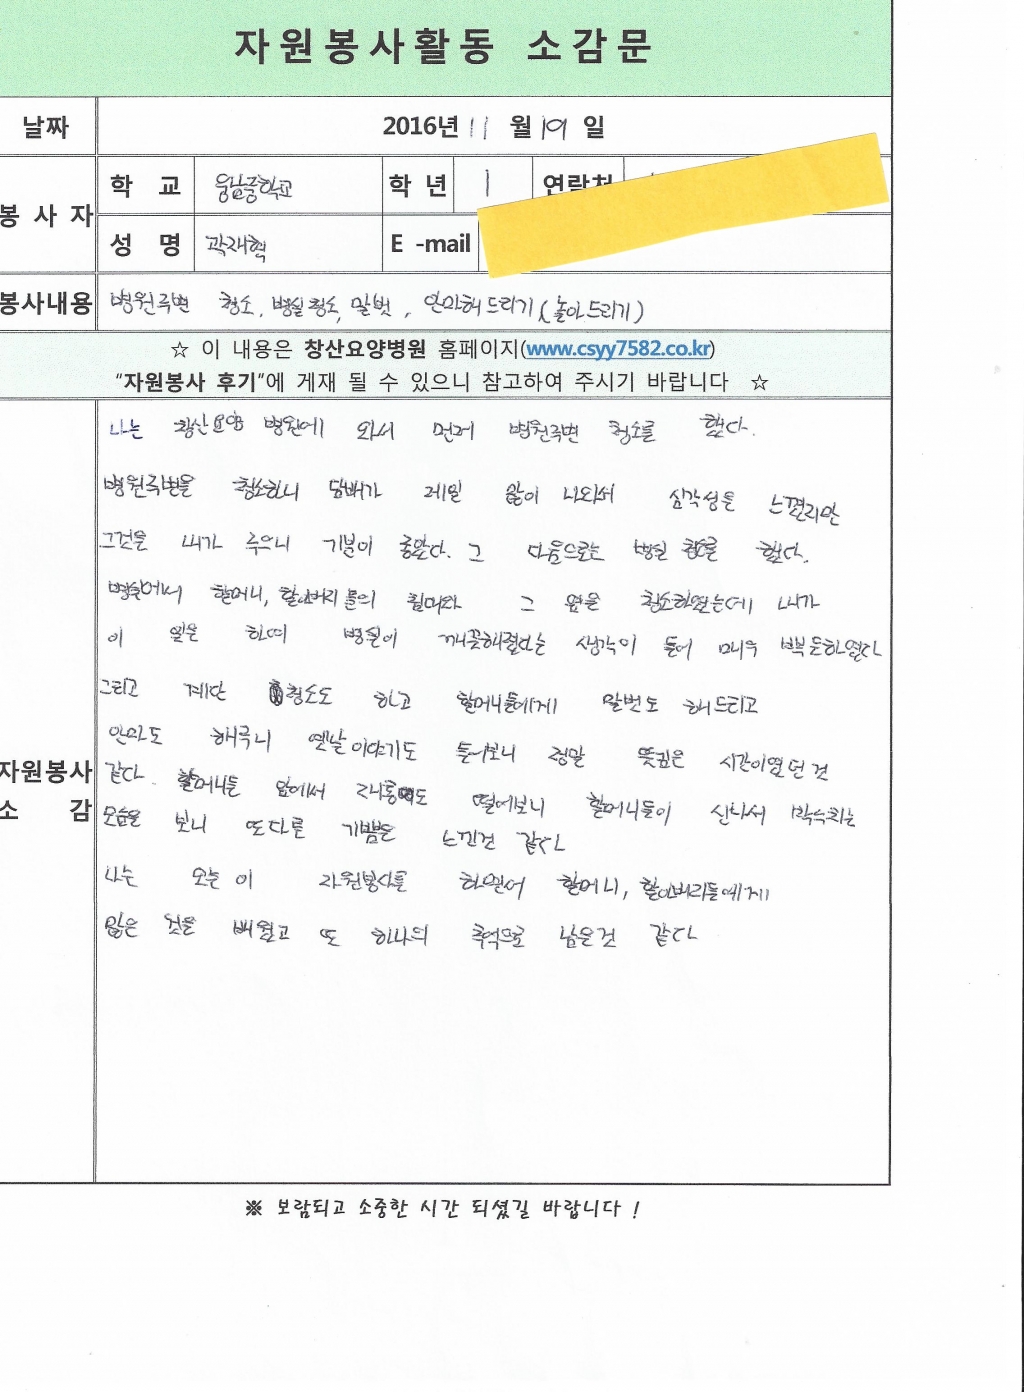 자원봉사활동 소감문
날짜 2016년 11 월 19 일
봉 사 자
학 교 웅남중학교 학 년 1 연락처
성 명 곽재혁 E -mail
봉사내용 병원주변 청소, 병실청소, 말벗, 안마해드리기 (놀아드리기)
☆ 이 내용은 창산요양병원 홈페이지(www.csyy7582.co.kr)
“자원봉사 후기“에 게재 될 수 있으니 참고하여 주시기 바랍니다 ☆
자원봉사
소 감
나는 창산요양 병원에 와서 먼저 병원주변 청소를 했다.
병원주변을 청소하니 담배가 제일 많이 나와서 심각성을 느꼈지만
그것을 내가 주우니 기분이 좋았다. 그 다음으로는 병실 청소를 했다.
병실에서 할머니, 할아버지들의 휠체어와 그 옆을 청소하였는데 내가
이 일을 하여 병실이 깨끗해졌다는 생각이 들어 매우 뿌듯하였다
그리고 계단 청소도 하고 할머니들에게 말벗도 해드리고
안마도 해주니 옛날이야기도 들어보니 정말 뜻깊은 시간이였던 것
같다. 할머니들 앞에서 재롱도 떨어보니 할머니들이 신나서 박수치는
모습을 보니 또다른 기쁨을 느낀것 같다
나는 오늘 이 자원봉사를 하면서 할머니, 할아버지들에게
많은 것을 배웠고 또 하나의 추억으로 남은것 같다
※ 보람되고 소중한 시간 되셨길 바랍니다 !